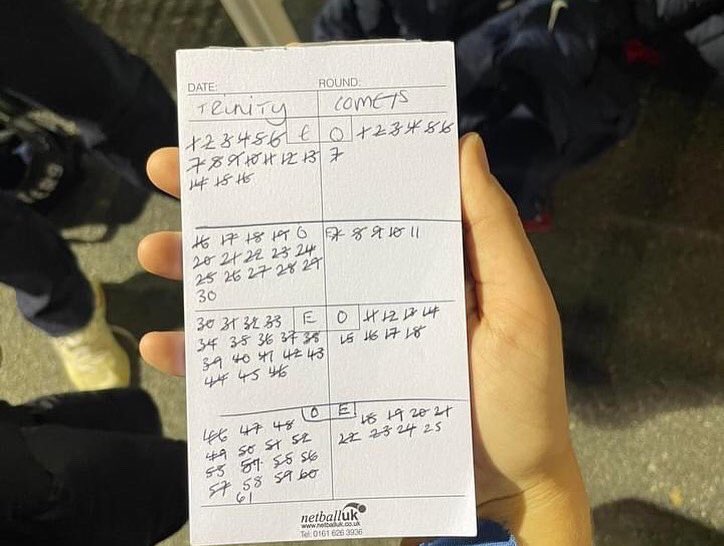 DATE: ROUND:
TRINITY COMETS
1 2 3 4 5 6 E O 1 2 3 4 5 6
7 8 9 10 11 12 13 7
14 15 16
16 17 18 19 O E 7 8 9 10 11
20 21 22 23 24
25 26 27 28 29
30
30 31 32 33 E O 11 12 13 14
34 35 36 37 38 15 16 17 18
39 40 41 42 43
44 45 46
O E
46 47 48 18 19 20 21
49 50 51 52 22 23 24 25
53 54 55 56
57 58 59 60
61
netballuk
www.netballuk.co.uk
Tel: 0161 626 3936